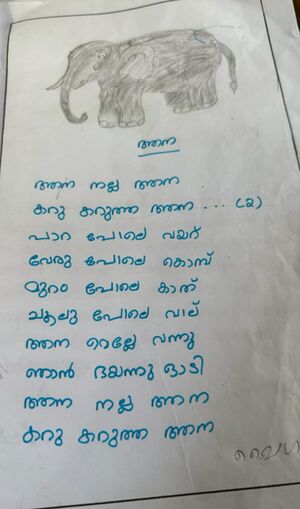 ആന
ആന നല്ല ആന
കറു കറുത്ത ആന ... (2)
പാറ പോലെ വയറ്
വേരു പോലെ കൊമ്പ്
മുറം പോലെ കാത്
ചൂലു പോലെ വാല്
ആന മെല്ലേ വന്നു
ഞാൻ ഭയന്നു ഓടി
ആന നല്ല ആന
കറു കറുത്ത ആന